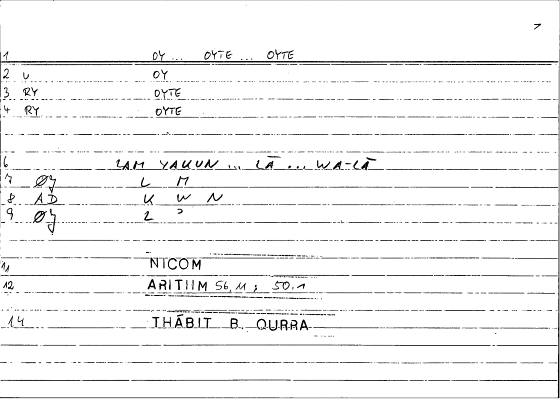 7
1 OY ... OYTE ... OYTE
2 U OY
3 RY OYTE
4 RY OYTE
6 LAM YAKUN ... LĀ ... WA-LĀ
7 ØY L M
8 AD K W N
9 ØY L ʾ
11 NICOM
12 ARITIIM 56,11 ; 50.1
14 THĀBIT B. QURRA